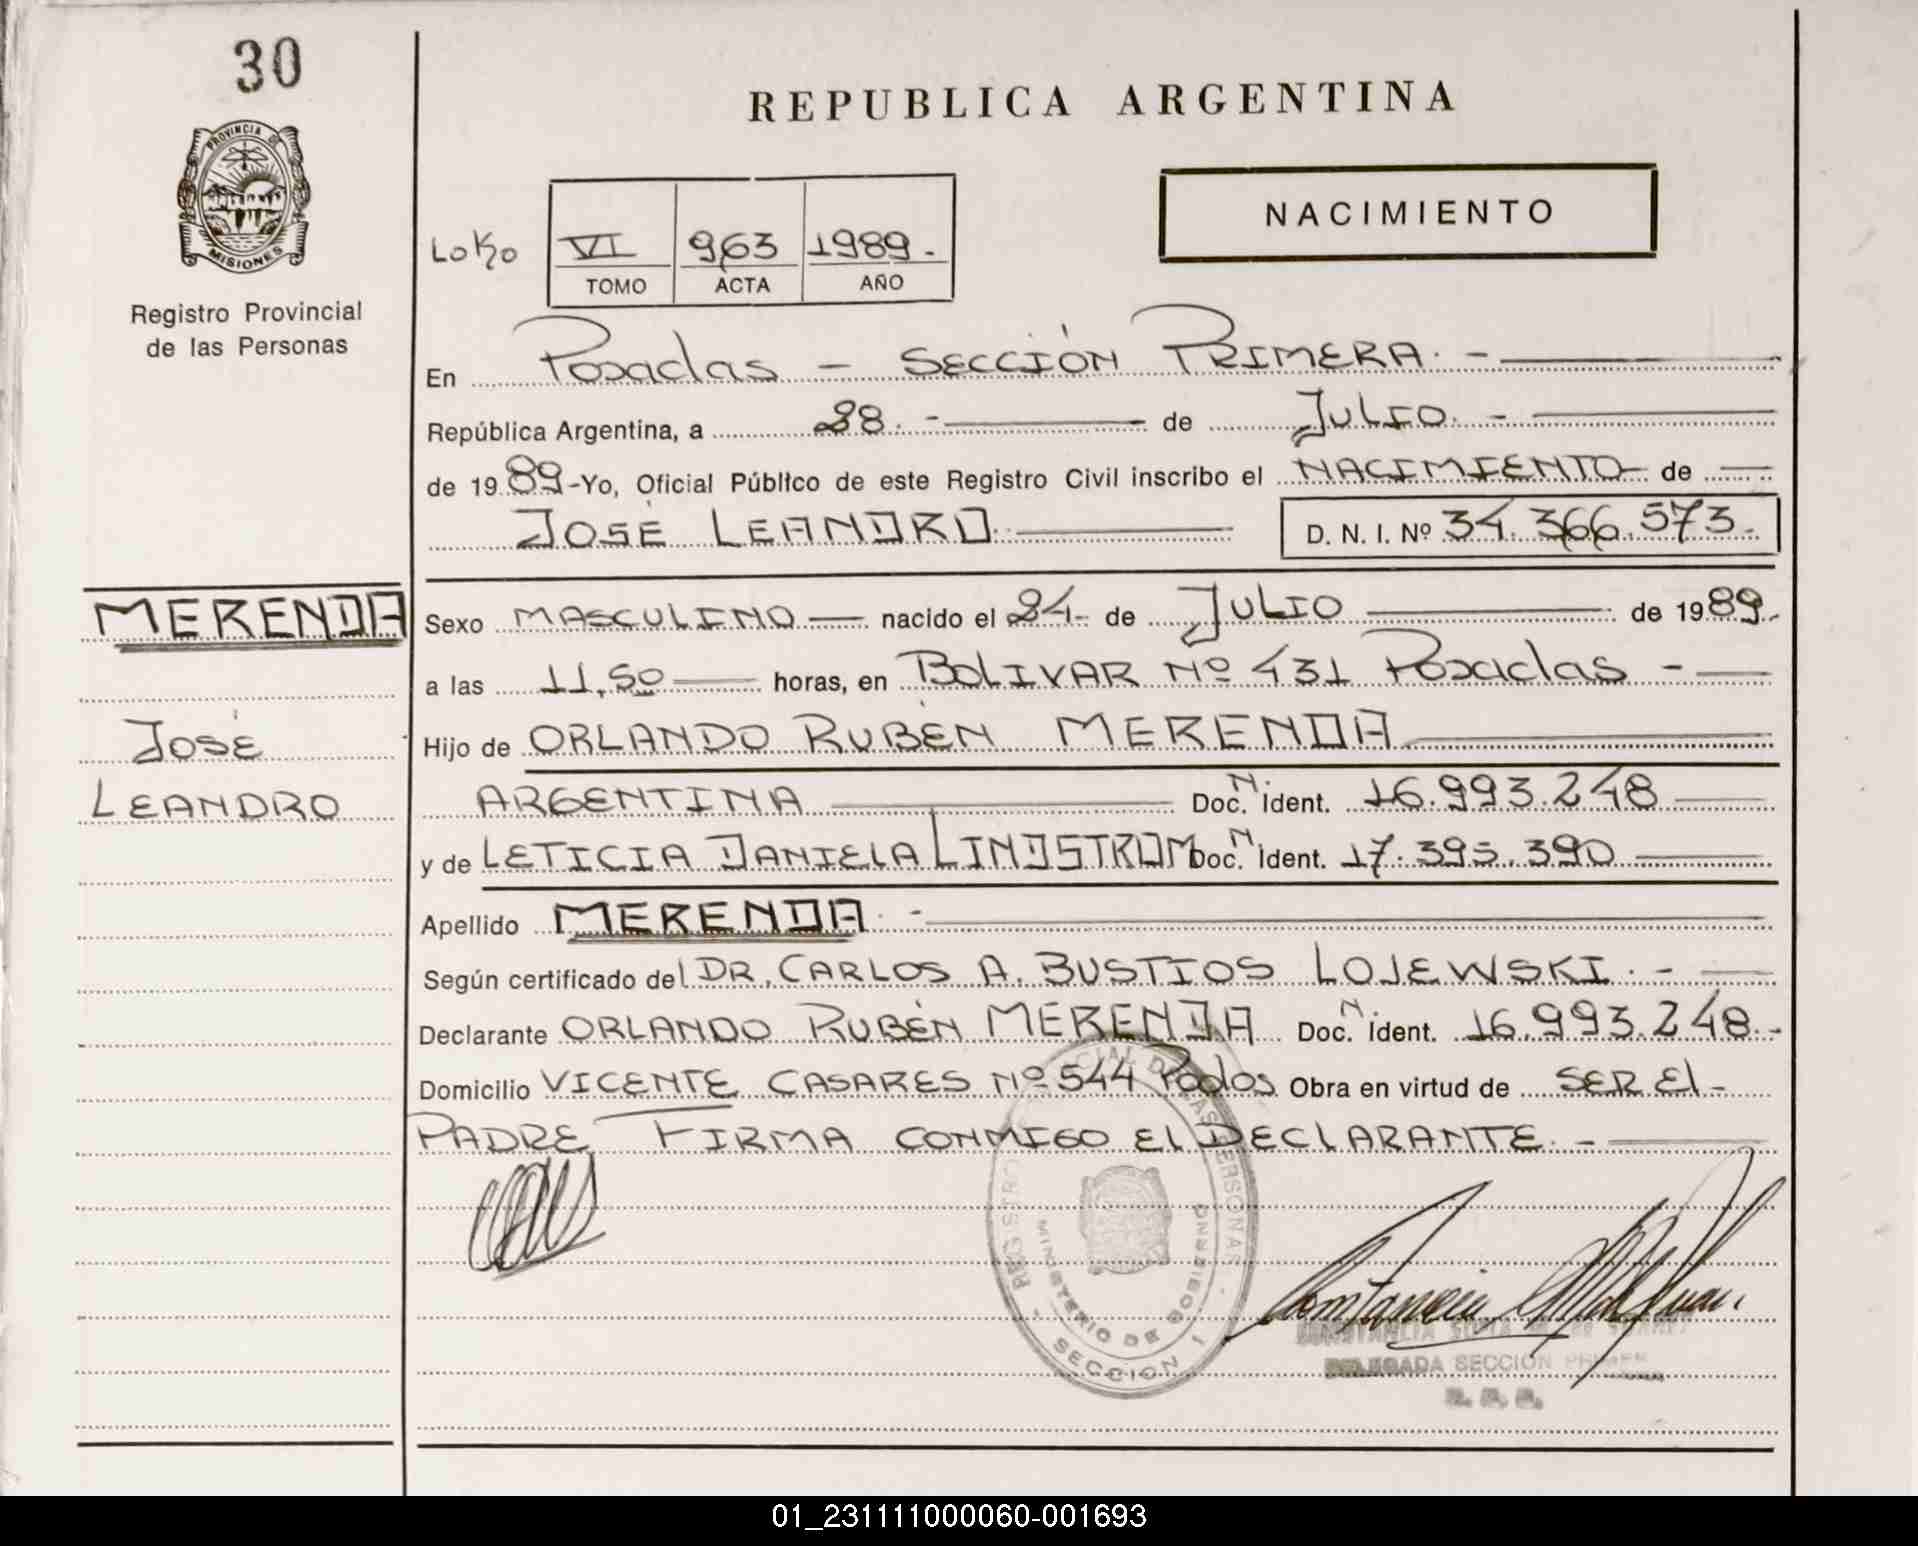 30
REPUBLICA ARGENTINA
PROVINCIA DE
MISIONES
NACIMIENTO
VI 963 1989.-
TOMO ACTA AÑO
Registro Provincial
de las Personas
En Posadas - SECCIÓN PRIMERA. -
República Argentina, a 28. - de JULIO. -
de 1989-Yo, Oficial Público de este Registro Civil inscribo el NACIMIENTO de
JOSÉ LEANDRO. D. N. I. Nº 34.366.573.
MERENDA
JOSÉ
LEANDRO
Sexo MASCULINO nacido el 24 de JULIO de 1989.
a las 11,50 horas, en BOLIVAR Nº 431 Posadas -
Hijo de ORLANDO RUBÉN MERENDA
ARGENTINA Doc. N. ident. 16.993.248
y de LETICIA DANIELA LINDSTROM Doc. N. ident. 17.395.390
Apellido MERENDA. -
Según certificado del DR. CARLOS A. BUSTIOS LOJEWSKI. -
Declarante ORLANDO RUBÉN MERENDA Doc. N. ident. 16.993.248.-
Domicilio VICENTE CASARES Nº 544 Pdas Obra en virtud de SER El -
PADRE FIRMA CONMIGO El DECLARANTE. -
REGISTRO PROVINCIAL DE LAS PERSONAS
MINISTERIO DE GOBIERNO
SECCION 1
CONSTANCIA
DELEGADA SECCION
01_231111000060-001693